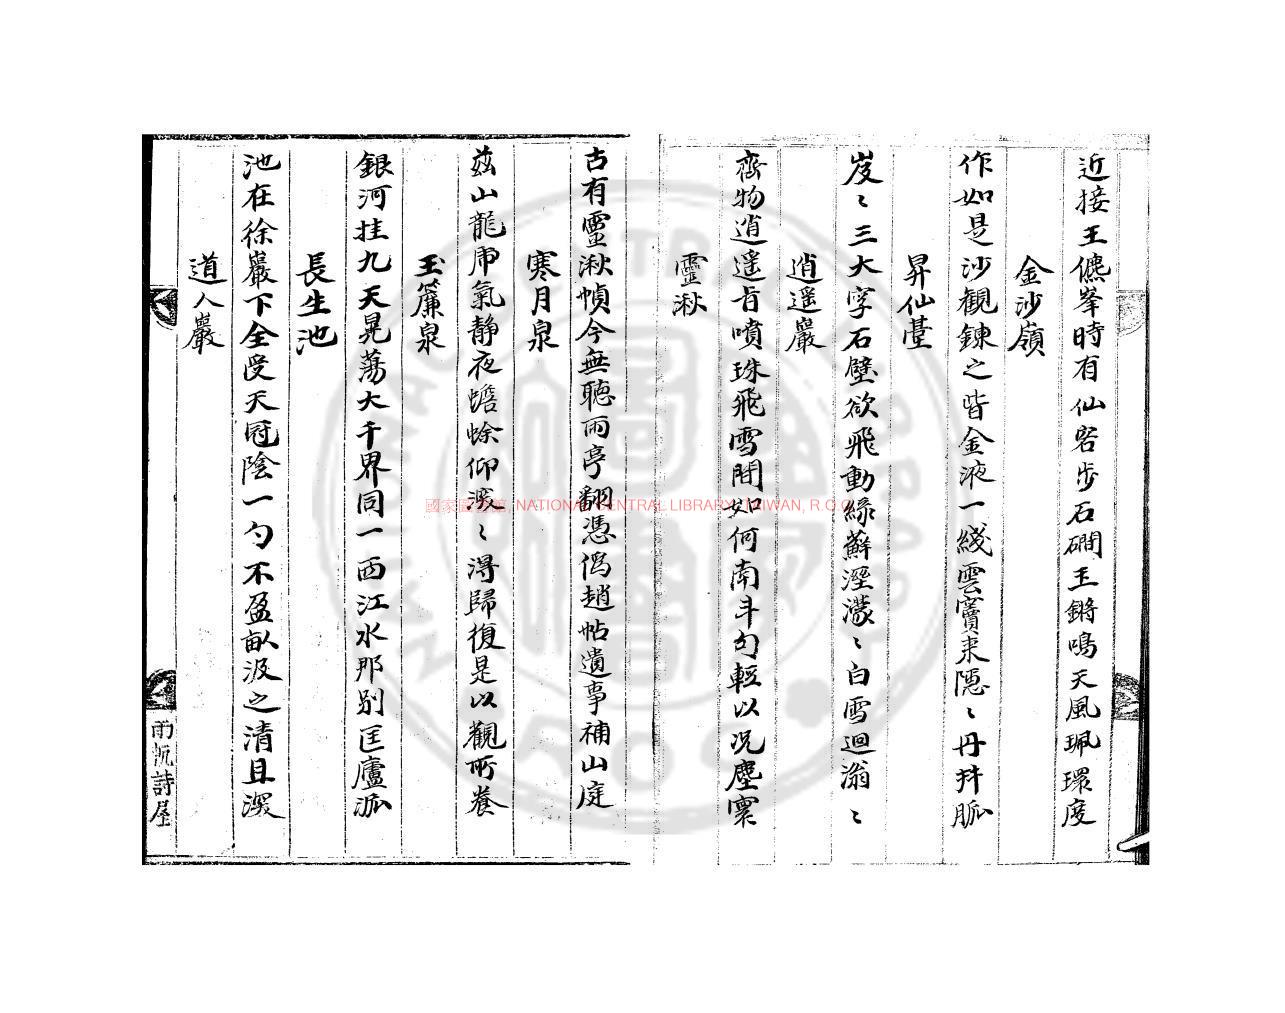 近接王僊峯時有仙客步石磵玉鏘鳴天風珮環度
金沙嶺
作如是沙觀鍊之皆金液一綫雲竇来隱〻丹井脈
昇仙臺
岌〻三大字石壁欲飛動綠蘚溼濛〻白雪迴滃〻
逍遥巖
齊物逍遥旨噴珠飛雪間如何南斗勺輕以況塵寰
靈湫
古有靈湫幀今無聽雨亭翻憑僞趙帖遺事補山庭
寒月泉
兹山龍虎氣静夜蟾蜍仰湥〻淂歸復是以觀所養
玉簾泉
銀河挂九天晃荡大千界同一西江水那别匡廬派
長生池
池在徐巖下全受天冠陰一勺不盈畝汲之清且深
道人巖
雨㼝詩屋
國家圖書館, NATIONAL CENTRAL LIBRARY, TAIWAN, R.O.C.